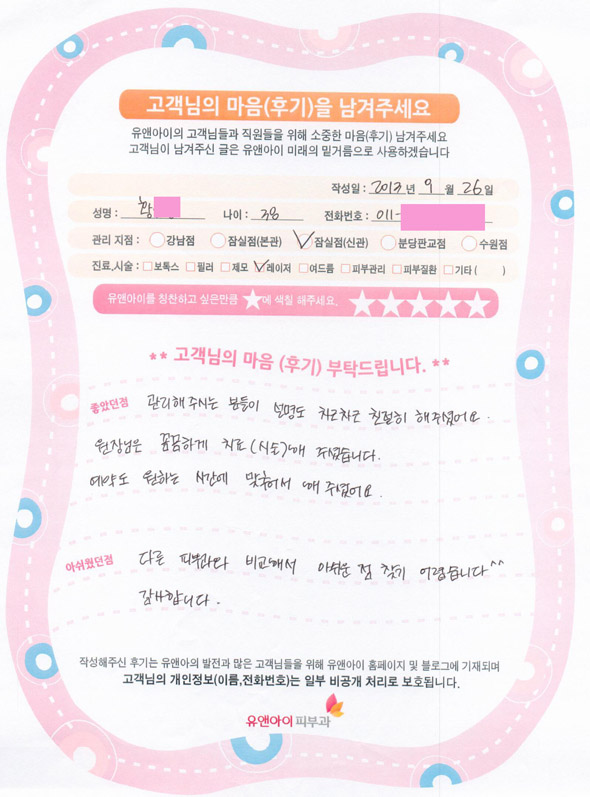 고객님의 마음(후기)을 남겨주세요
유앤아이의 고객님들과 직원들을 위해 소중한 마음(후기) 남겨주세요
고객님이 남겨주신 글은 유앤아이 미래의 밑거름으로 사용하겠습니다
작성일 : 2013 년 9 월 26 일
성명 : 황 나이 : 38 전화번호 : 011-
관리 지점 : 강남점 잠실점(본관) 잠실점(신관) 분당판교점 수원점
진료,시술 : 보톡스 필러 제모 레이저 여드름 피부관리 피부질환 기타 ( )
유앤아이를 칭찬하고 싶은만큼 ★에 색칠 해주세요.
** 고객님의 마음 (후기) 부탁드립니다. **
좋았던점 관리해주시는 분들이 설명도 차근차근 친절히 해주셨어요.
원장님은 꼼꼼하게 치료(시술)해 주셨습니다.
예약도 원하는 시간에 맞춰서 해 주셨어요.
아쉬웠던점 다른 피부과와 비교해서 아쉬운 점 찾기 어렵습니다^^
감사합니다.
작성해주신 후기는 유앤아의 발전과 많은 고객님들을 위해 유앤아이 홈페이지 및 블로그에 기재되며
고객님의 개인정보(이름,전화번호)는 일부 비공개 처리로 보호됩니다.
유앤아이 피부과